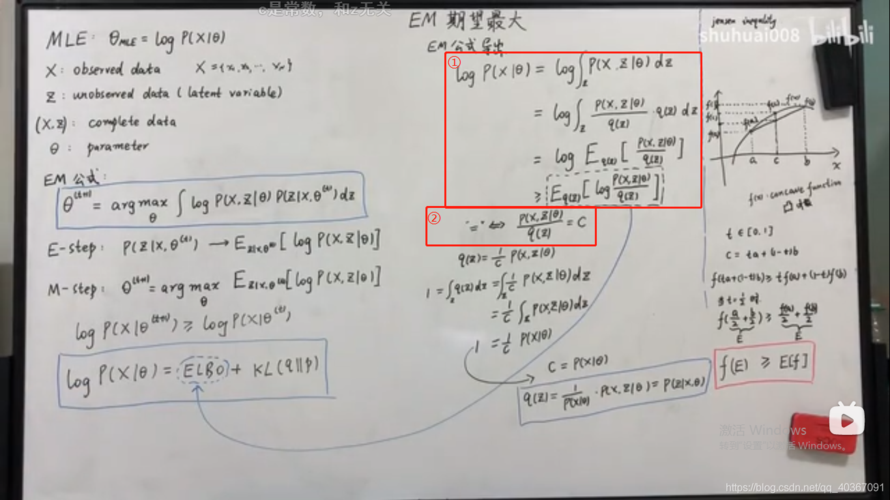 c是常数，和z无关
EM 期望最大
MLE: θ_MLE = log P(X|θ)
X: observed data X = {x₁, x₂, ⋯, x_N}
Z: unobserved data (latent variable)
(X, Z): complete data
θ: parameter
EM 公式:
θ^(t+1) = arg max_θ ∫ log P(X, Z|θ) P(Z|X, θ^(t)) dz
E-step: P(Z|X, θ^(t)) → E_{Z|X,θ^(t)} [log P(X, Z|θ)]
M-step: θ^(t+1) = arg max_θ E_{Z|X,θ^(t)} [log P(X, Z|θ)]
log P(X|θ^(t+1)) ≥ log P(X|θ^(t))
log P(X|θ) = ELBO + KL(q||p)
EM 公式导出
①
log P(X|θ) = log ∫_Z P(X, Z|θ) dz
= log ∫_Z P(X, Z|θ)/q(z) · q(z) dz
= log E_q(z) [P(X, Z|θ)/q(z)]
≥ E_q(z) [log P(X, Z|θ)/q(z)]
②
"=" ⇔ P(X, Z|θ)/q(z) = C
q(z) = 1/C P(X, Z|θ)
1 = ∫_Z q(z) dz = ∫_Z 1/C P(X, Z|θ) dz
= 1/C ∫_Z P(X, Z|θ) dz
1 = 1/C P(X|θ)
C = P(X|θ)
q(z) = 1/P(X|θ) · P(X, Z|θ) = P(Z|X, θ)
jensen inequality
shuhuai008 bilibili
a c b x
f(x) concave function
t ∈ [0, 1]
C = ta + (1-t)b
f(ta+(1-t)b) ≥ t f(a) + (1-t) f(b)
f(a/2 + b/2) ≥ f(a)/2 + f(b)/2
E E
f(E) ≥ E[f]
激活 Windows
https://blog.csdn.net/qq_40367091